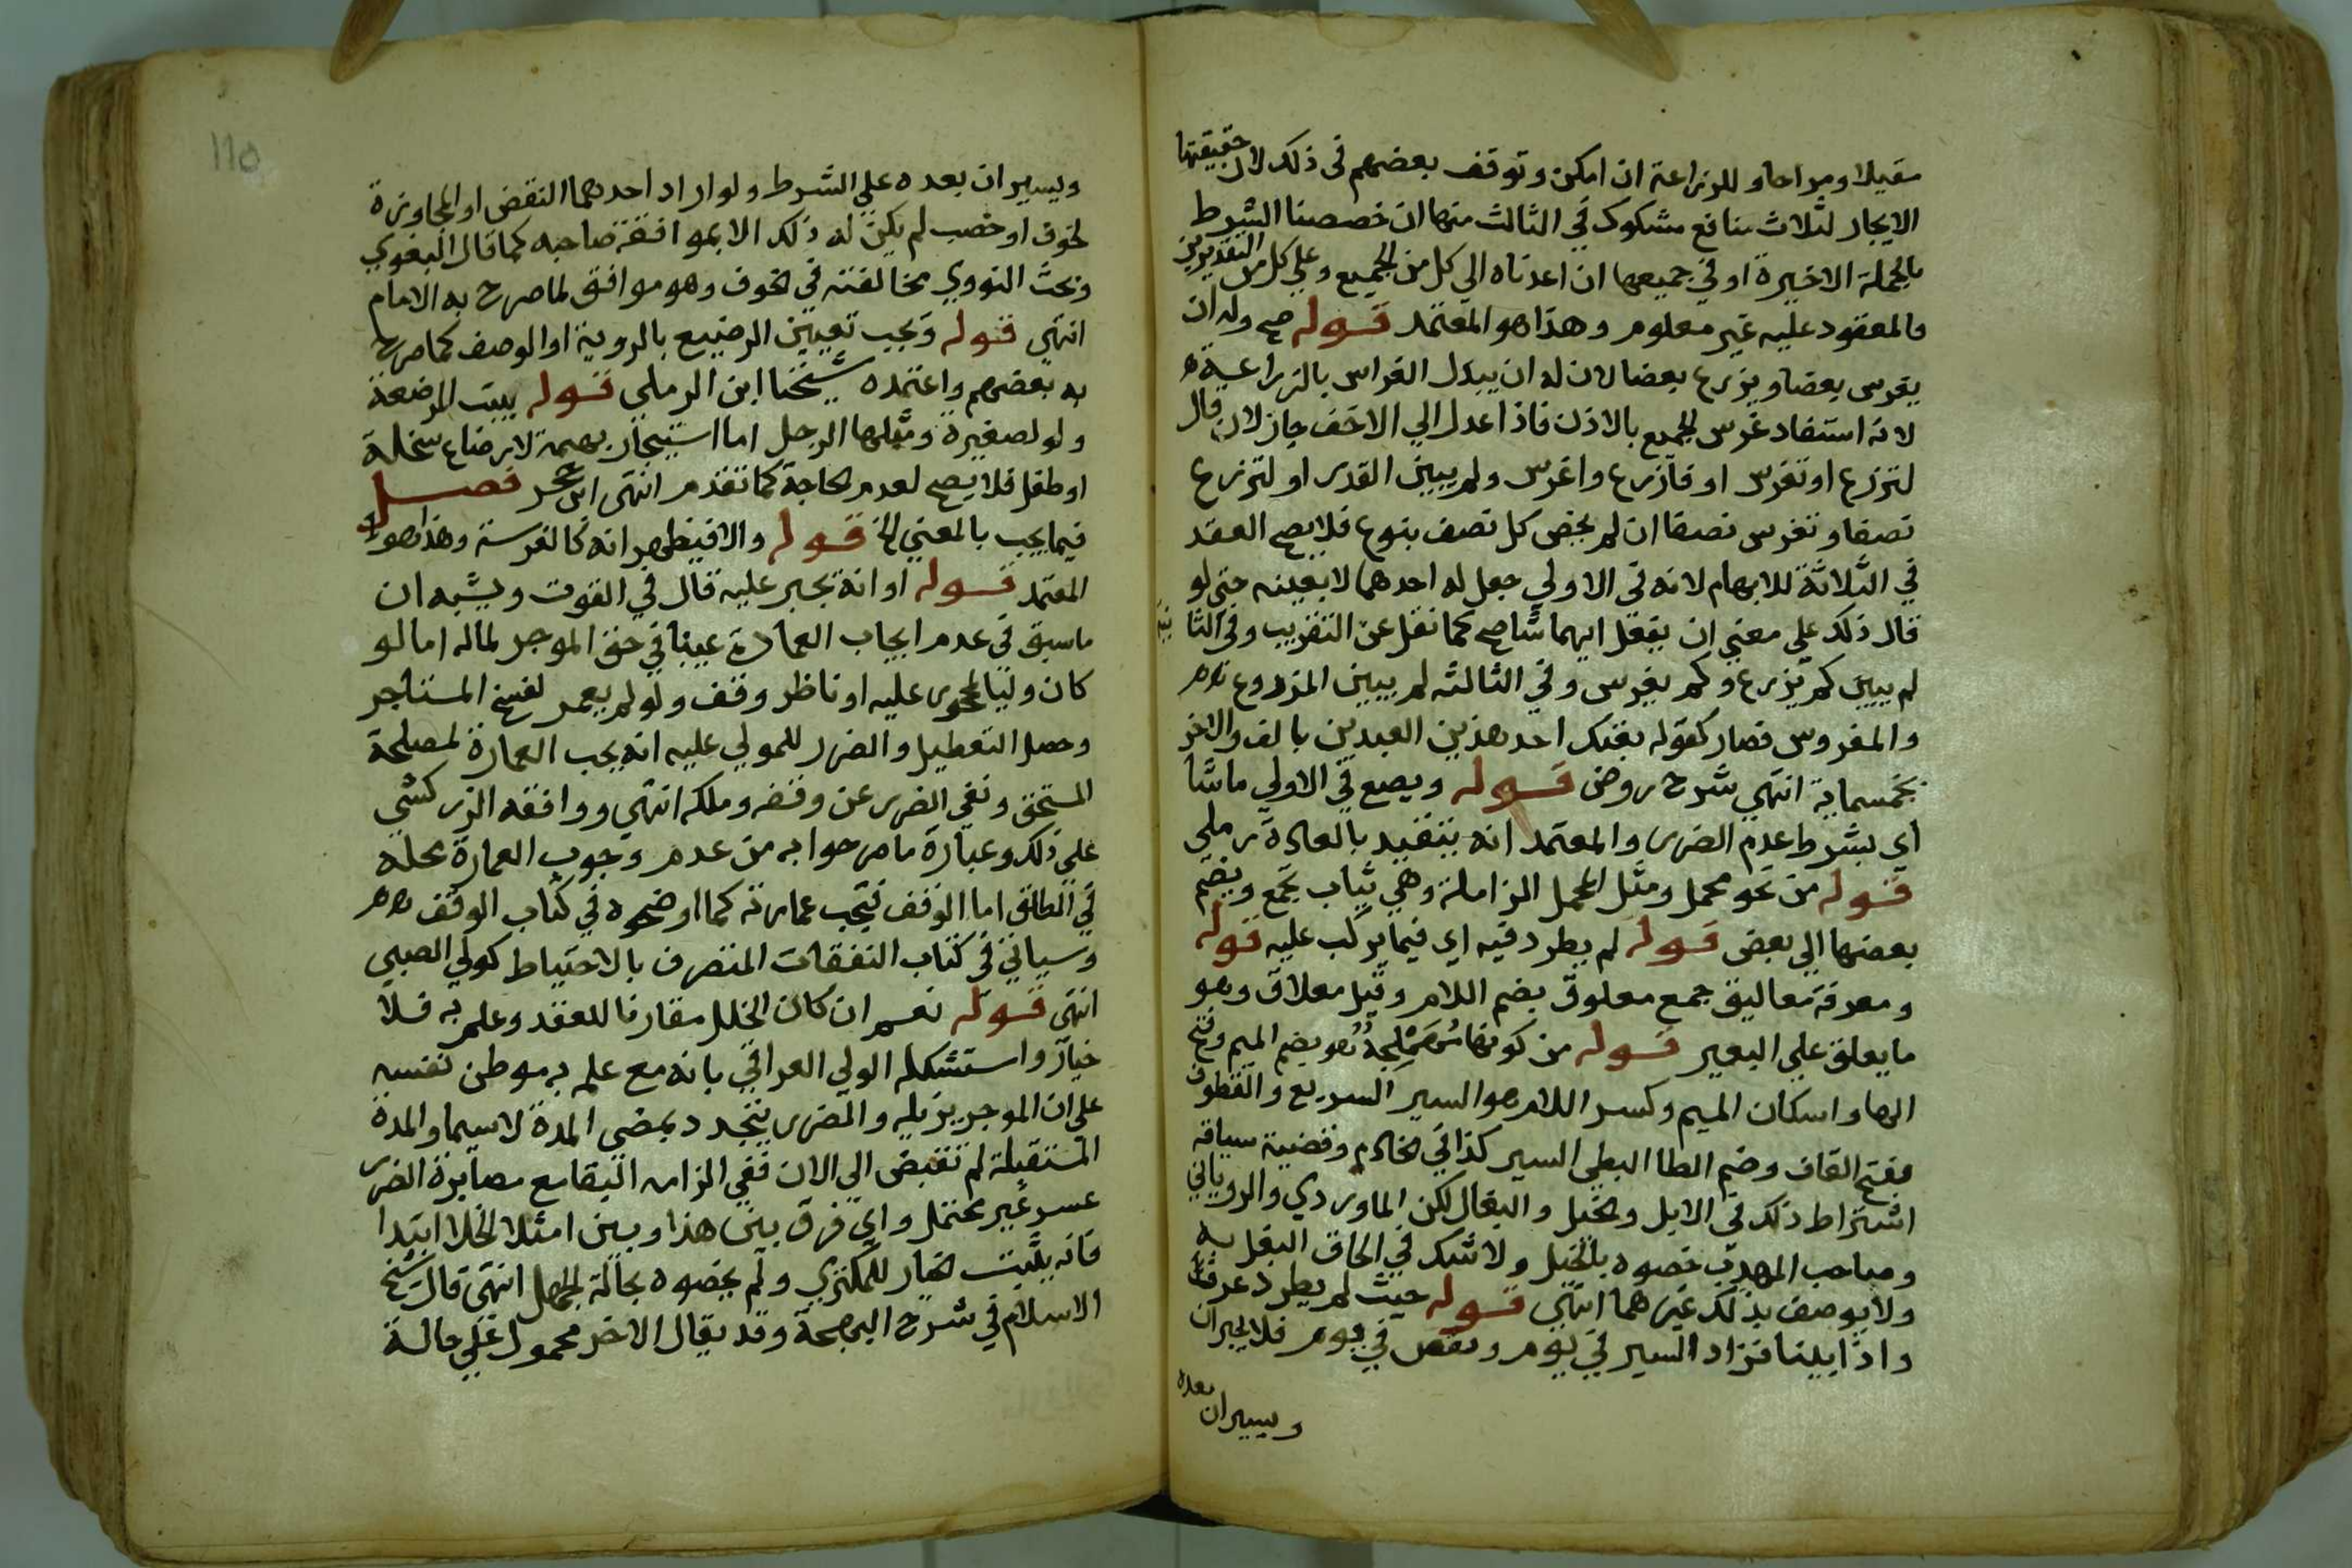 مقيلا ومراحا وللزراعة ان امكن وتوقف بعضهم في ذلك لان حقيقتها
الايجار لثلاث منافع مشكوك في الثالث منها ان خصصنا الشرط
بالجملة الاخيرة او في جميعها ان اعدناه الي كل من الجميع وعلي كل من التقديرين
فالمعقود عليه غير معلوم وهذا هو المعتمد قوله صح وله ان
يغرس بعضا ويزرع بعضا لان له ان يبدل الغراس بالزراعة
لانه استفاد غرس الجميع بالاذن فاذا عدل الي الاخف جاز لان قال
لتزرع او تغرس او فازرع واغرس ولم يبين القدر او لتزرع
نصفا وتغرس نصفا ان لم يخص كل نصف بنوع فلا يصح العقد
في الثلاثة للابهام لانه في الاولي جعل له احدهما لا بعينه حتي لو
قال ذلك علي معني ان يفعل ايهما شا صح كما نقل عن التقريب وفي الثانية
لم يبين كم يزرع وكم يغرس وفي الثالثة لم يبين المزروع
والمغروس فصار كقوله بعتك احد هذين العبدين بالف والاخر
بخمسماية انتهي شرح روض قوله ويصع في الاولي ما شا
اي بشرط عدم الضرر والمعتمد انه يتقيد بالعادة رملي
قوله من نحو محمل ومثل المحمل الزاملة وهي ثياب تجمع ويضم
بعضها الي بعض قوله لم يطرد فيه اي فيما يركب عليه قوله
ومعرفة معاليق جمع معلوق بضم اللام وقيل معلاق وهو
ما يعلق علي البعير قوله من كونها مهملجة هو بضم الميم وفتح
الها واسكان الميم وكسر اللام هو السير السريع والقطوف
بفتح القاف وضم الطا البطي السير كذا في الخادم وقضية سياقه
اشتراط ذلك في الابل والخيل والبغال لكن الماوردي والروياني
وصاحب المهذب خصوه بالخيل ولا شك في الحاق البغل به
ولا يوصف بذلك غيرهما انتهي قوله حيث لم يطرد عرف
واذا بينا فزاد السير في يوم ونقص في يوم فلا يجبران
بعده
ويسيران
110
ويسيران بعده علي الشرط ولو اراد احدهما النقض او المجاوزة
لخوف او خصب لم يكن له ذلك الا بموافقة صاحبه كما قال البغوي
وبحث النووي مخالفته في الخوف وهو موافق لما صرح به الامام
انتهي قوله ويجب تعيين الرضيع بالروية او الوصف كما صرح
به بعضهم واعتمده شيخنا ابن الرملي قوله ببيت المرضعة
ولو لصغيرة ومثلها الرجل اما استيجار بهيمة لارضاع سخلة
او طفل فلا يصح لعدم الحاجة كما تقدم انتهي ابن حجر فصل
فيما يجب بالمعني الخ قوله والا فيظهر انه كالفرسة وهذا هو
المعتمد قوله او انه يجبر عليه قال في القوت ويشبه ان
ما سبق في عدم ايجاب العمارة عينا في حق الموجر لماله اما لو
كان وليا لمحجور عليه او ناظر وقف ولو لم يعمر لفسخ المستاجر
وحصل التعطيل والضرر للمولي عليه انه يجب العمارة لمصلحة
المستحق ونفي الضرر عن وقفه وملكه انتهي ووافقه الزركشي
علي ذلك وعبارة ما صرحوا به من عدم وجوب العمارة محله
في الطلق اما الوقف فيجب عمارته كما اوضحوه في كتاب الوقف
وسياتي في كتاب النفقات المتصرف بالاحتياط كولي الصبي
انتهي قوله نعم ان كان الخلل مقارنا للعقد وعلم به فلا
خيار واستشكله الولي العراقي بانه مع علمه به موطن نفسه
علي ان الموجر يزيله والضرر يتجدد بمضي المدة لا سيما والمدة
المستقبلة لم تقبض الي الان ففي الزامه البقا مع مصابرة الضرر
عسر غير محتمل واي فرق بين هذا وبين امثلا الخلا ابتدا
فانه يثبت الخيار للمكتري ولم يخصوه بحالة الجهل انتهي قال شيخ
الاسلام في شرح البهجة وقد يقال الاخر محمول علي حالة